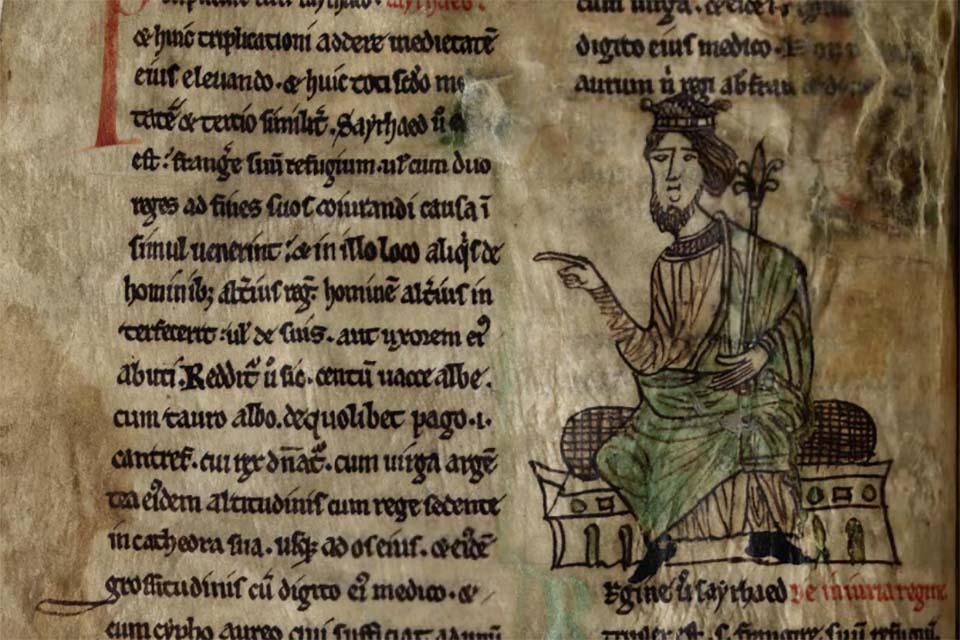 & huic triplicationi addere medietatē
eius eleuando. & huic toti scđo me
tatē & tertio similit̄. Sayrhaed ū
est: frangͥe suū refugium. ul' cum duo
reges ad fines suos coiurandi causa ī
simul uenerint: & in illo loco aliqͥs de
hominib; alt̄ius reḡ. hominē alt̄ius in
terfecerit: ul' de suis. aut uxorem eiꝰ
abuti. Reddit᷑ ū sic. centū uacce albe.
cum tauro albo. de quolibet pago .i.
cantref. cui rex dn̄at᷑. cum uirga argē
tea eidem altitudinis cum rege sedente
in cathedra sua. usq; ad os eius. & eidē
grossitudinis cū digito eiꝰ medico. &
cum cypho aureo cui sufficiat ad unū
cum uirga. &
digito eius medico.
aurum ū
Regine ū sayrhaed De iniuria regine
est. s. frangere suū refugiū